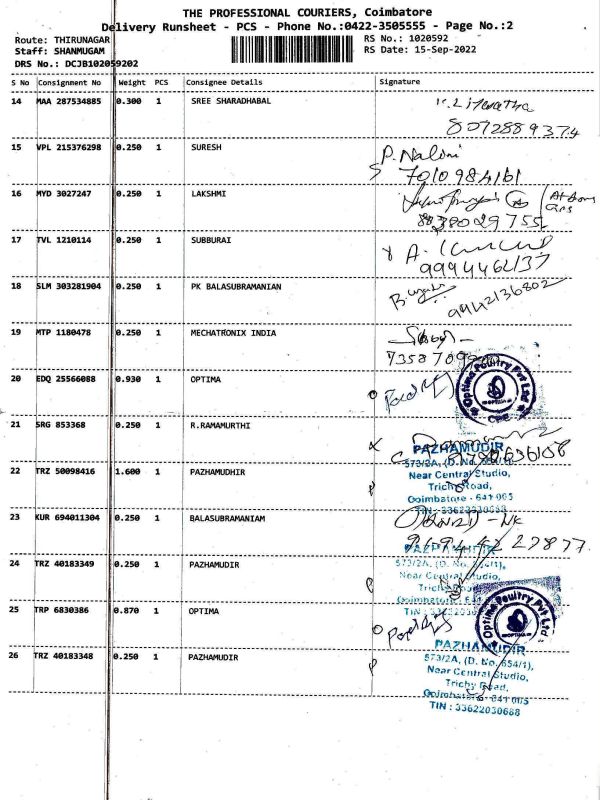 THE PROFESSIONAL COURIERS, Coimbatore
Delivery Runsheet - PCS - Phone No.:0422-3505555 - Page No.:2
Route: THIRUNAGAR
RS No.: 1020592
Staff: SHANMUGAM
RS Date: 15-Sep-2022
DRS No.: DCJB102059202
S No Consignment No Weight PCS Consignee Details Signature
14 MAA 287534885 0.300 1 SREE SHARADHABAL
8072889374
15 VPL 215376298 0.250 1 SURESH P. Nalini
7010984161
16 MYD 3027247 0.250 1 LAKSHMI
8838029755
17 TVL 1210114 0.250 1 SUBBURAI A.
9994462137
18 SLM 303281904 0.250 1 PK BALASUBRAMANIAN
9942136802
19 MTP 1180478 0.250 1 MECHATRONIX INDIA
20 EDQ 25566088 0.930 1 OPTIMA
Optima Poultry Pvt Ltd
OPTIMA
CBE
21 SRG 853368 0.250 1 R.RAMAMURTHI
22 TRZ 50098416 1.600 1 PAZHAMUDHIR
PAZHAMUDIR
573/2A, (D. No. 654/1),
Near Central Studio,
Trichy Road,
Coimbatore - 641 005
TIN : 33622030688
23 KUR 694011304 0.250 1 BALASUBRAMANIAM
24 TRZ 40183349 0.250 1 PAZHAMUDIR
PAZHAMUDIR
573/2A, (D. No. 654/1),
Near Central Studio,
Trichy
Coimbatore
25 TRP 6830386 0.870 1 OPTIMA
Optima Poultry Pvt Ltd
OPTIMA
26 TRZ 40183348 0.250 1 PAZHAMUDIR
PAZHAMUDIR
573/2A, (D. No. 654/1),
Near Central Studio,
Trichy Road,
Coimbatore - 641 005
TIN : 33622030688